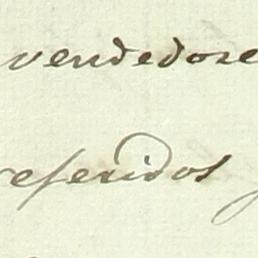 vendedore
referidos